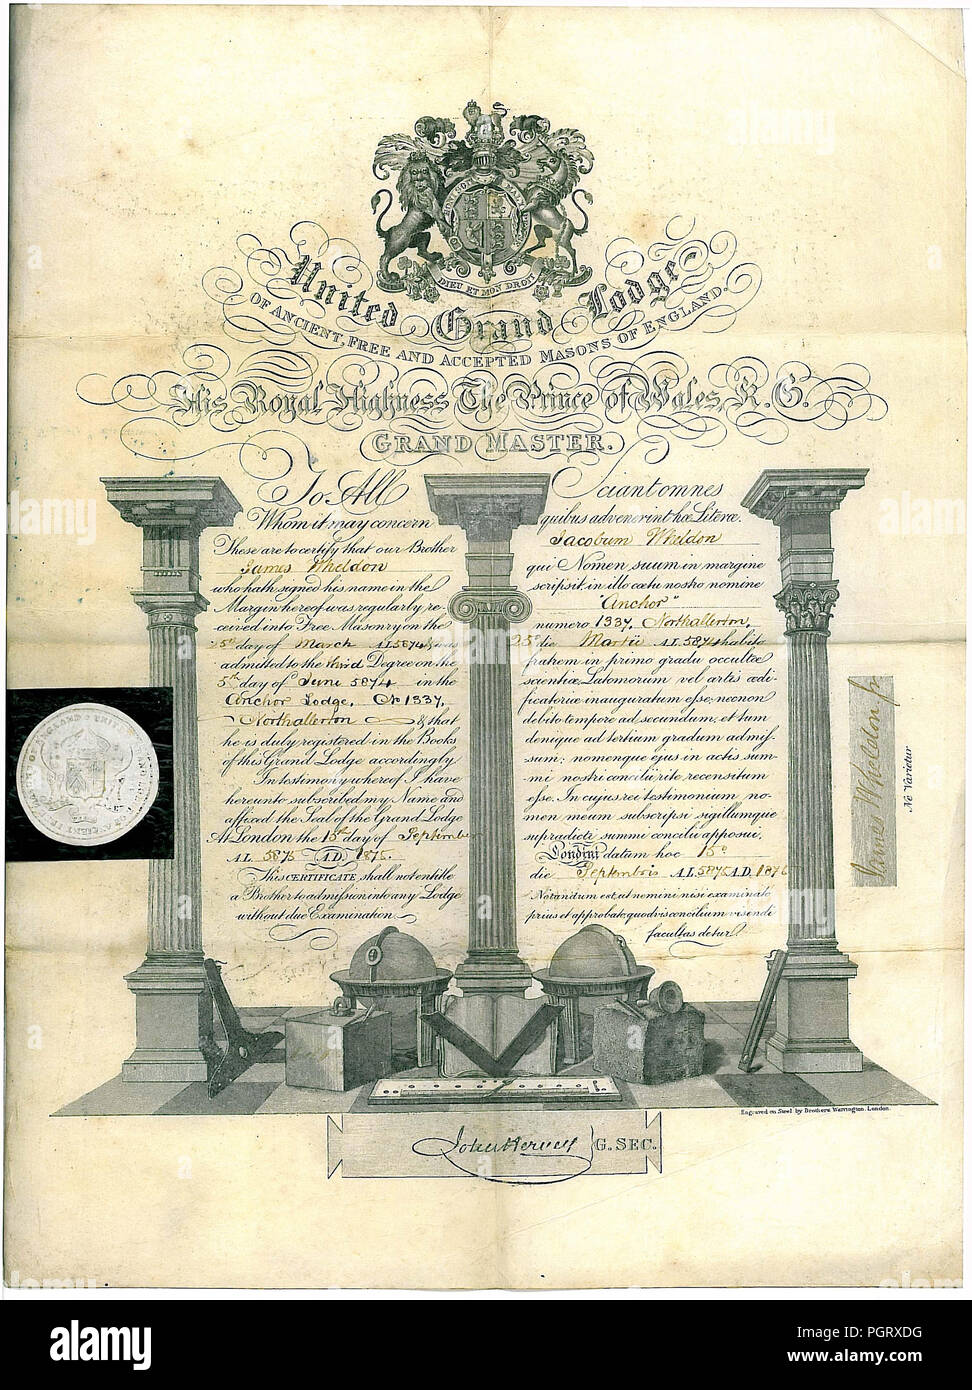 DIEU ET MON DROIT
United Grand Lodge
OF ANCIENT, FREE AND ACCEPTED MASONS OF ENGLAND.
His Royal Highness The Prince of Wales, K.G.
GRAND MASTER.
To All
Whom it may concern
These are to certify that our Brother
James Wheldon
who hath signed his name in the
Margin hereof was regularly re-
ceived into Free Masonry on the
25th day of March A.L. 5874 & was
admitted to the third Degree on the
5th day of June 5874 in the
Anchor Lodge, No 1337,
Northallerton & that
he is duly registered in the Books
of this Grand Lodge accordingly
In testimony whereof I have
hereunto subscribed my Name and
affixed the Seal of the Grand Lodge
At London the 15th day of September
A.L. 5875 A.D. 1875.
This CERTIFICATE, shall not entitle
a Brother to admission into any Lodge
without due Examination.
Sciant omnes
quibus advenerint hæ Literæ.
Jacobum Wheldon
qui Nomen suum in margine
scripsit, in illo cœtu nostro nomine
"Anchor"
numero 1337, Northallerton,
25o die Martii A.L. 5874 habito
fratrem in primo gradu occultæ
scientiæ, Latomorum vel artis ædi-
ficatoriæ inauguratum esse; necnon
debito tempore ad secundum, et tum
denique ad tertium gradum admis-
sum: nomenque ejus in actis sum-
mi nostri concilii rite recensitum
esse. In cujus rei testimonium no-
men meum subscripsi sigillumque
supradicti summi concilii apposui.
Londini datum hoc 15o
die Septembris A.L. 5875 A.D. 1875
Notandum est, ut nomini nisi examinato
prius et approbato quodvis concilium visendi
facultas detur.
James Wheldon
Ne Varietur
Engraved on Steel by Brothers Warrington, London.
John Hervey G. SEC.
alamy
Image ID: PGRXDG
www.alamy.com